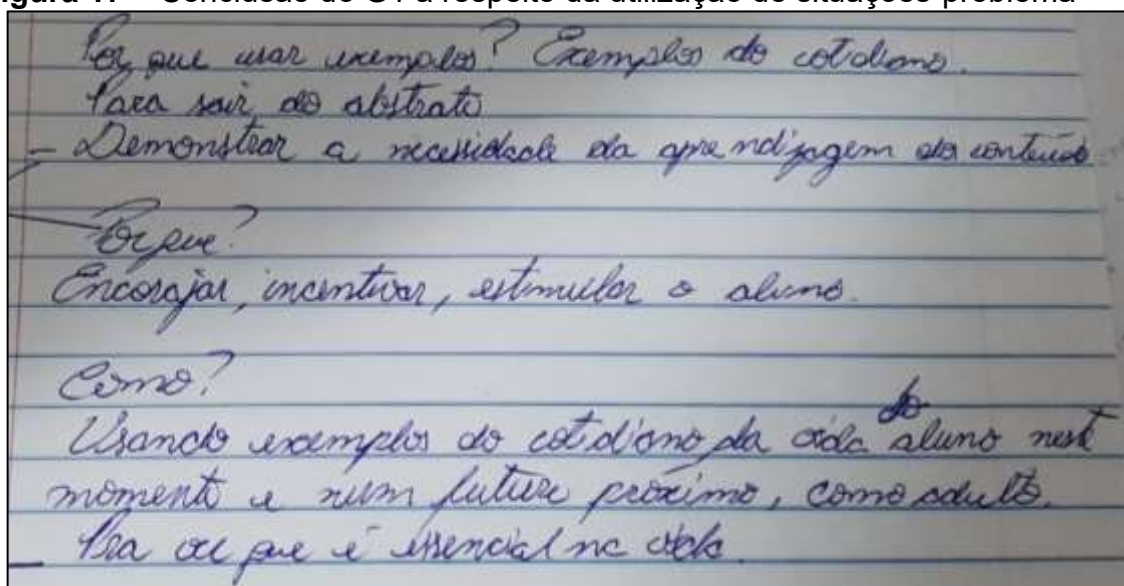 Figura 17 – Conclusão do G1 a respeito da utilização de situações problema
Por que usar exemplos? Exemplos do cotidiano.
Para sair do abstrato
- Demonstrar a necessidade da aprendizagem do conteúdo
Por que?
Encorajar, incentivar, estimular o aluno.
Como?
Usando exemplos do cotidiano da vida do aluno neste
momento e num futuro próximo, como adulto.
que é essencial na vida.